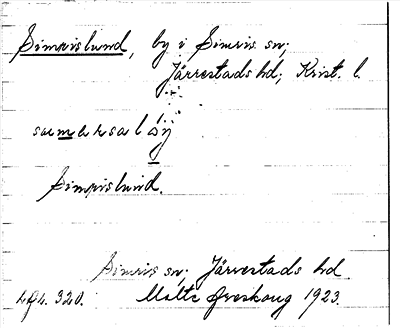 Simrislund, by i Simris sn;
Järrestads hd; Krist. l.
Simrislund.
Simris sn; Järrestads hd
Afl. 320. Malte Areskoug 1923.